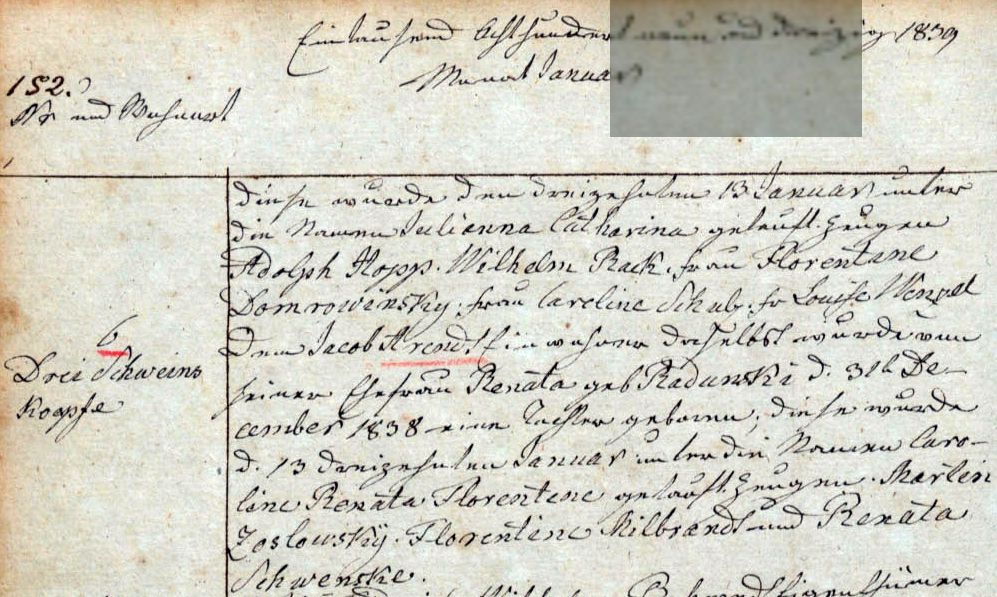 Eintausend Achthundert neun und dreizig 1839
Monat Januar
152.
No und Wohnort
diese wurde den dreizehnten 13 Januar unter
die Namen Julianna Catharina getauft. Zeugen
Adolph Hopp. Wilhelm Rack. frau Florentine
Domrowinsky. frau Careline Schulz. fr Louise Wenzel
6
Dem Jacob Arendt Einwohner daselbst wurde von
Drei Schweins
seiner Ehefrau Renata geb Radunski d. 31t De-
Koepfe
cember 1838 eine Tochter geboren, diese wurde
d. 13 dreizehnten Januar unter die Namen Caro-
line Renata Florentene getauft. Zeugen. Martin
Zoslowskÿ. Florentine Milbrandt und Renata
Schwenske.
Wilhelm Behrend Eigenthümer